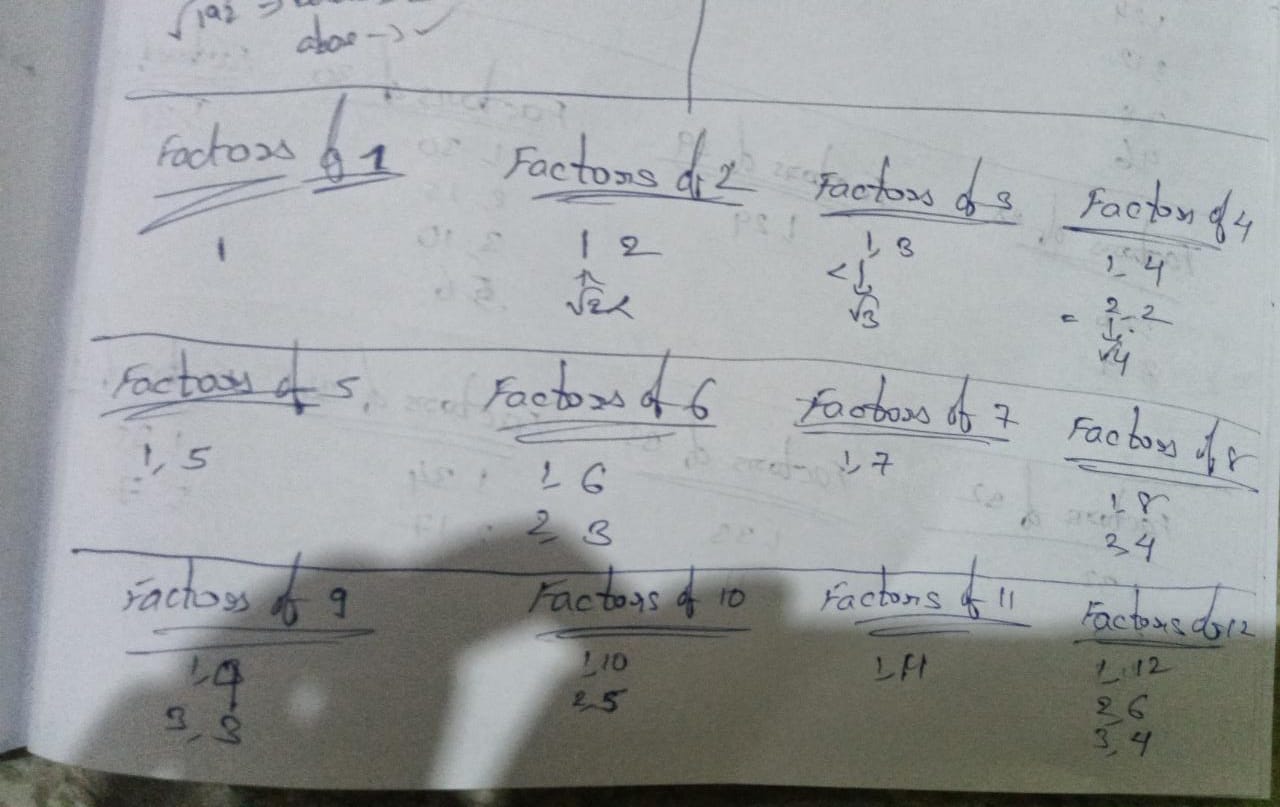 √192 →
abae → ✓
Factors of 1
1
Factors of 2
1 2
√2 <
Factors of 3
1, 3
< ↓
√3
Factors of 4
1, 4
= 2, 2
↓
√4
Factors of 5
1, 5
Factors of 6
1, 6
2, 3
Factors of 7
1, 7
Factors of 8
1, 8
2, 4
Factors of 9
1, 9
3, 3
Factors of 10
1, 10
2, 5
Factors of 11
1, 11
Factors of 12
1, 12
2, 6
3, 4